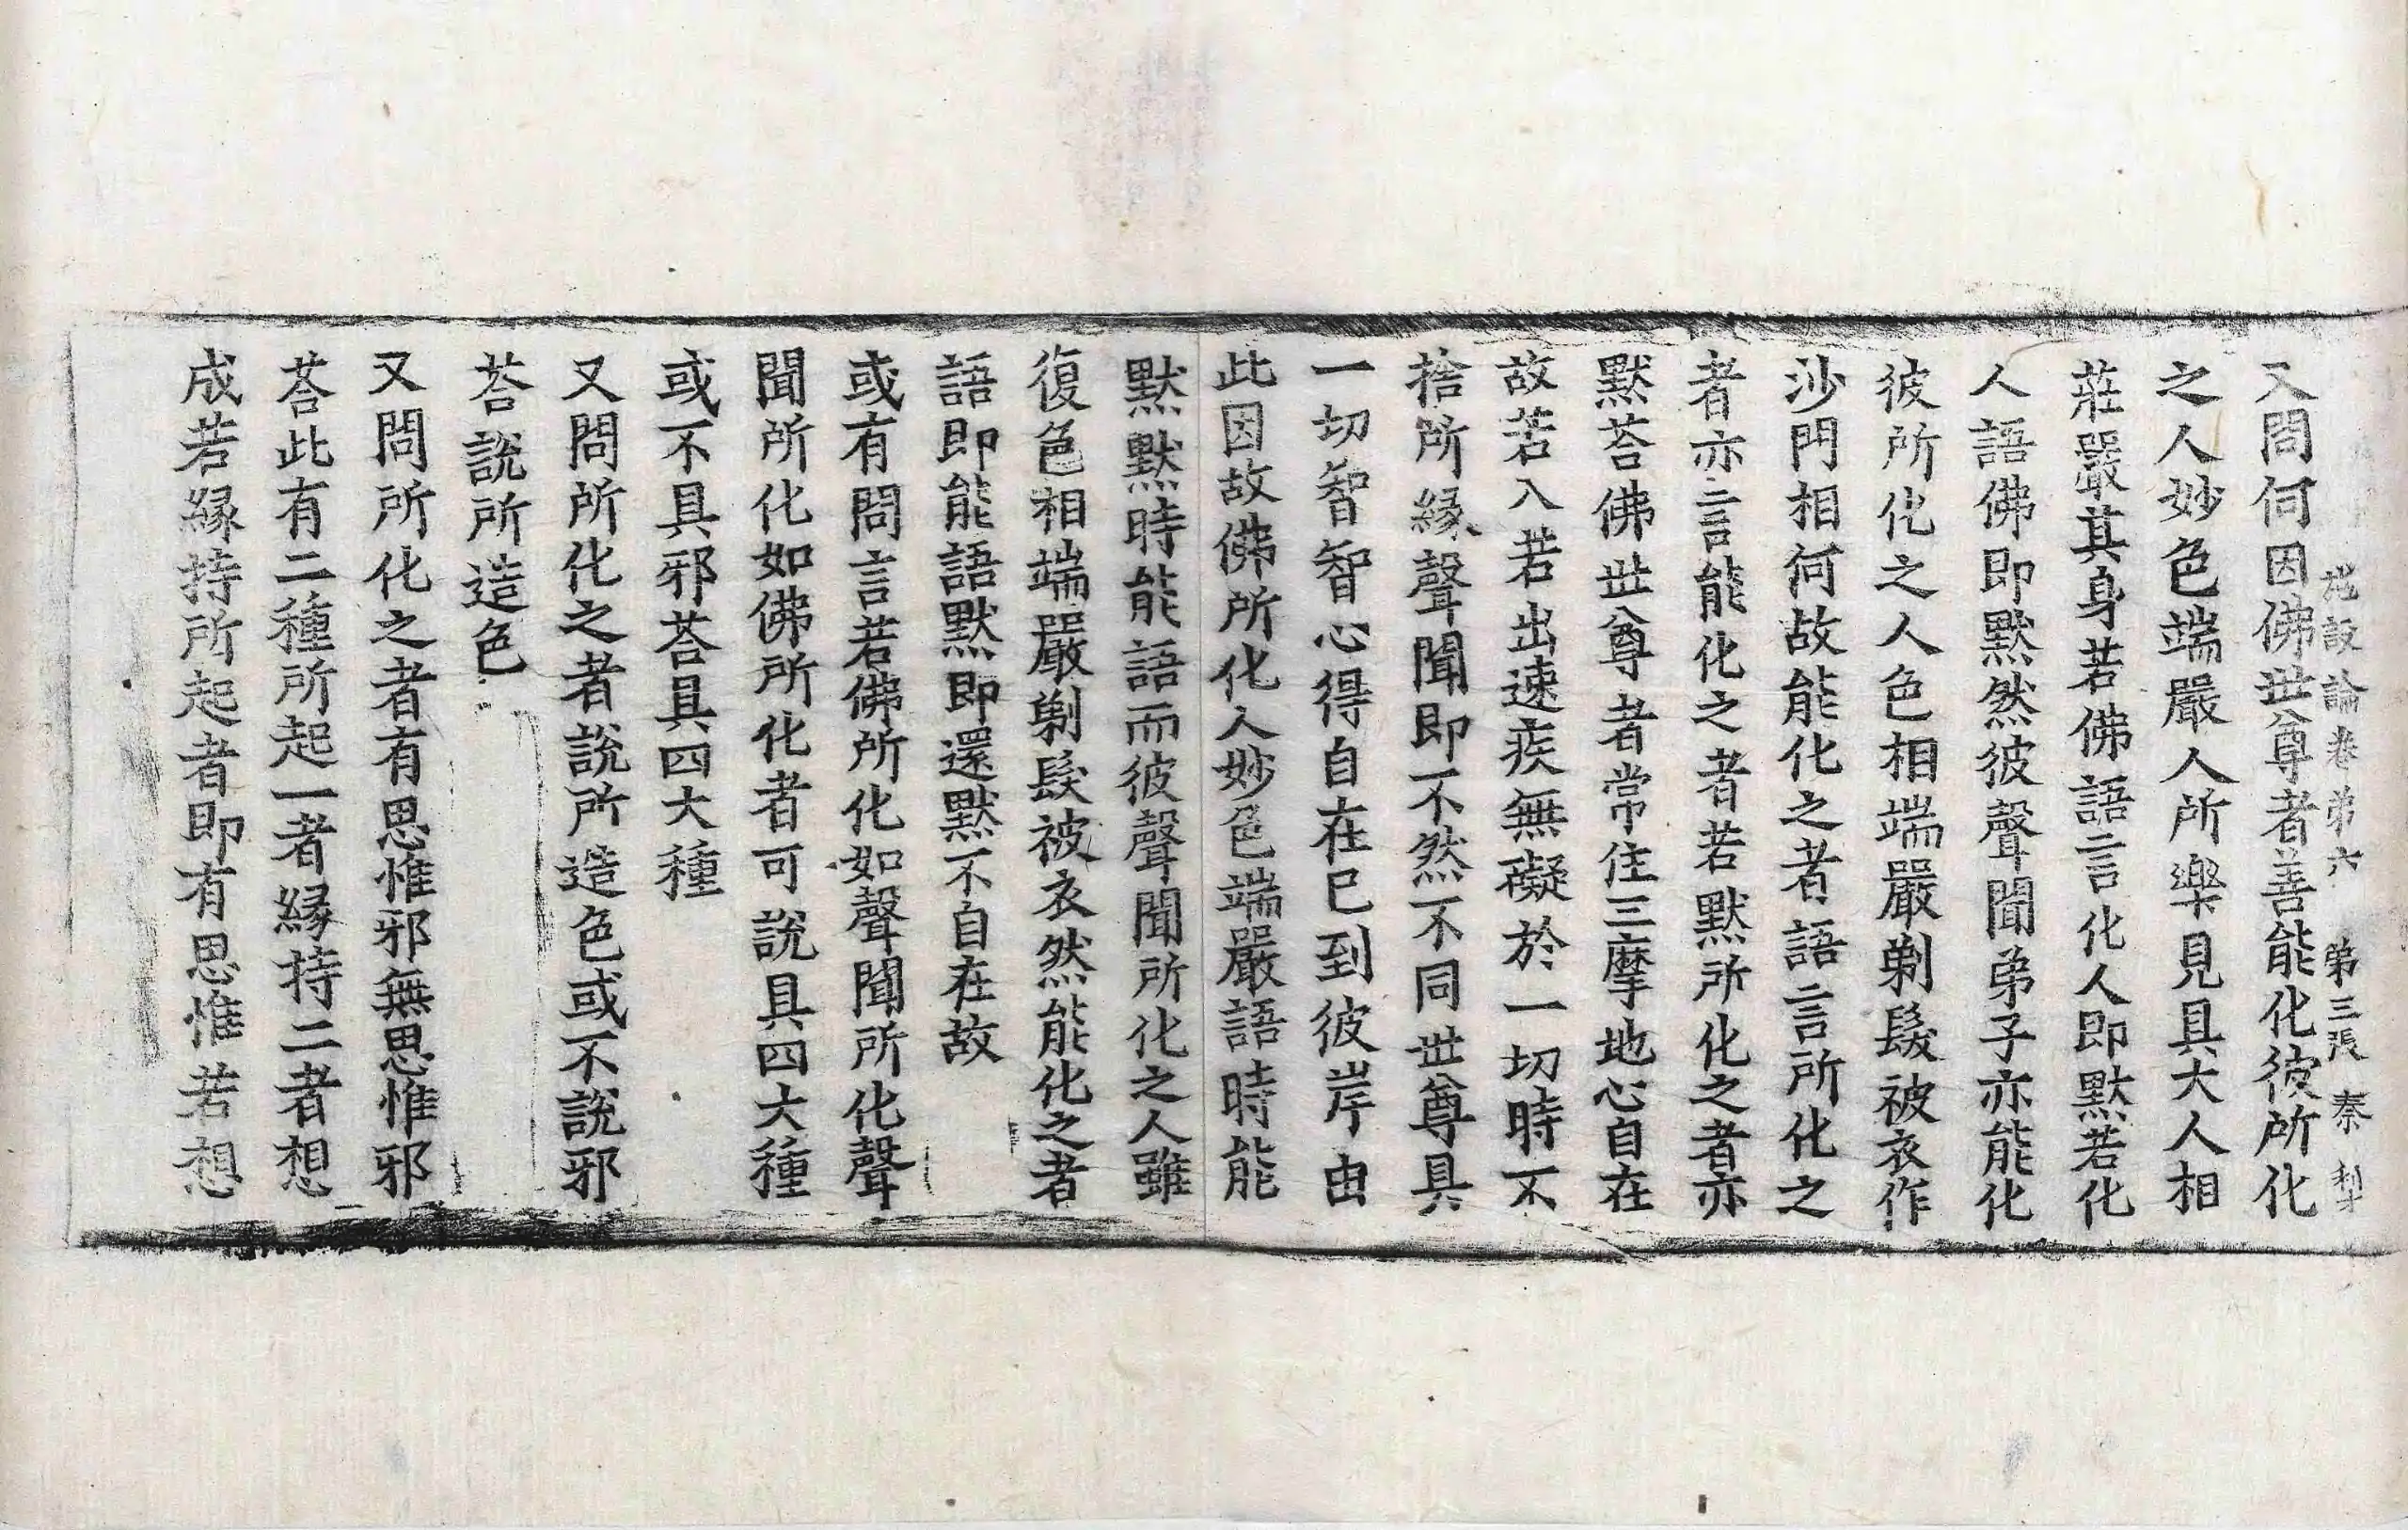 施設論卷弟六　第三張　秦
又問何因佛世尊者善能化彼所化
之人妙色端嚴人所樂見具大人相
莊嚴其身若佛語言化人即默若化
人語佛即默然彼聲聞弟子亦能化
彼所化之人色相端嚴剃髮被衣作
沙門相何故能化之者語言所化之
者亦言能化之者若默所化之者亦
默荅佛世尊者常住三摩地心自在
故若入若出速疾無礙於一切時不
捨所緣聲聞即不然不同世尊具
一切智智心得自在已到彼岸由
此因故佛所化人妙色端嚴語時能
默默時能語而彼聲聞所化之人雖
復色相端嚴剃髮被衣然能化之者
語即能語默即還默不自在故
或有問言若佛所化如聲聞所化聲
聞所化如佛所化者可說具四大種
或不具邪荅具四大種
又問所化之者說所造色或不說邪
荅說所造色
又問所化之者有思惟邪無思惟邪
荅此有二種所起一者緣持二者想
成若緣持所起者即有思惟若想